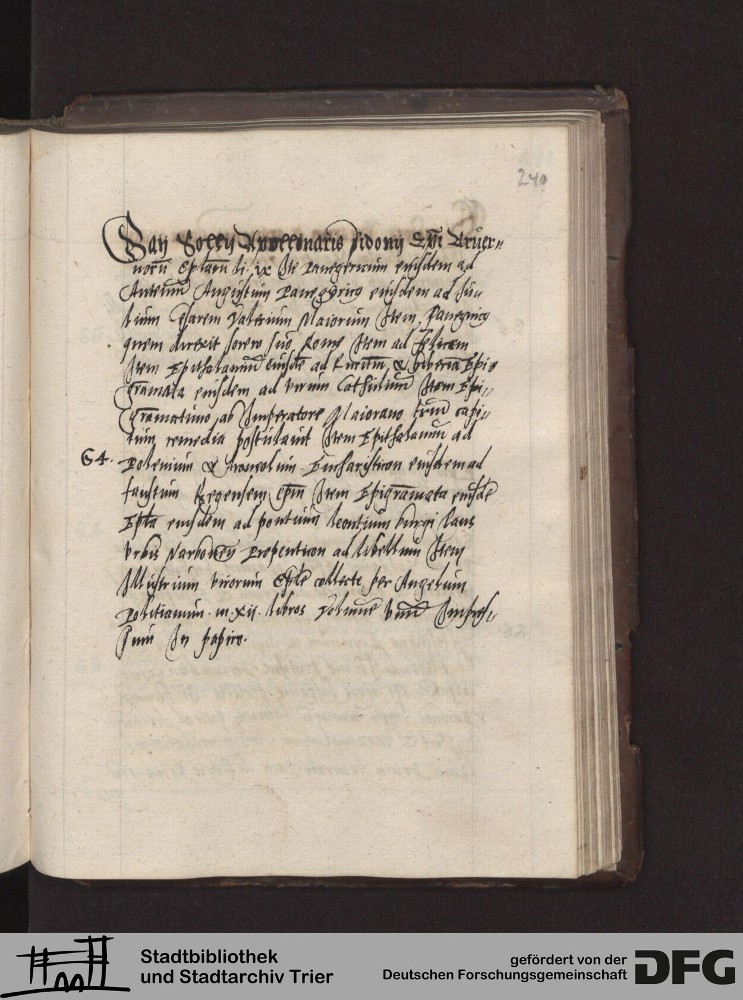 240
Gaij Sollij Apollinaris sidonij Epi Aruer„
norū Eplarū li. ix Ite Panegericum eiusdem ad
Antemiū Augustum Panegyricus eiusdem ad Iu„
lium Cesarem Valerium Maiorium Item Panegiri
quem dixit socero suo Rome Item ad felicem
Item Epithalamiū eiusdē ad Ruritiū & hiberia Epi„
gramata eiusdem ad virum Cathuliuū Item Epi„
gramatimo ab Imperatore Maiorano triū capi„
tum remedia postulauit Item Epithalamiū ad
64. Polemium & Araneolum Eucharisticon eiusdem ad
faustum Regensem epm Item Epigramata eiusdē
Epla eiusdem ad pontium leontium burgi laus
Vrbis Narbonē Propenticon ad libellum Item
Illustrium virorum Eple collecte per Angelum
Politianum in xij. libros Volume vnū Impres„
sum In papiro.
Stadtbibliothek
und Stadtarchiv Trier
gefördert von der
Deutschen Forschungsgemeinschaft
DFG